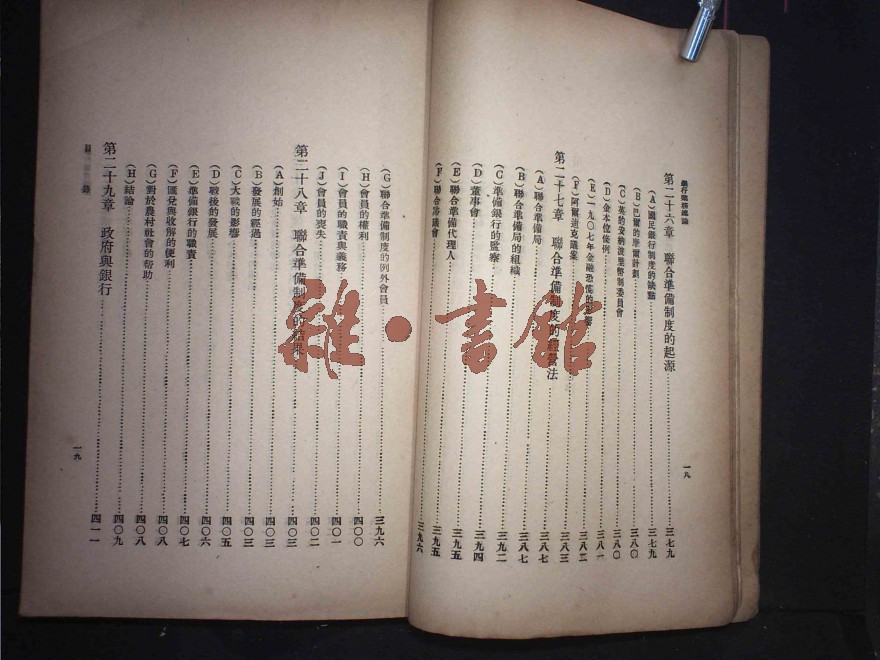 銀行業務總論
第二十六章 聯合準備制度的起源 三七九
(A)國民銀行制度的缺點 三七九
(B)巴爾的摩爾計劃 三八〇
(C)英的安納波里幣制委員會 三八〇
(D)金本位條例 三八一
(E)一九〇七年金融恐慌的 三八二
(F)阿爾迪克議案 三八三
第二十七章 聯合準備制度的經營法 三八七
(A)聯合準備局 三八七
(B)聯合準備局的組織 三八七
(C)準備銀行的監察 三九二
(D)董事會 三九四
(E)聯合準備代理人 三九五
(F)聯合 議會 三九五
三九六
一八
(G)聯合準備制度的例外會員 三九六
(H)會員的權利 四〇〇
(I)會員的職責與義務 四〇一
(J)會員的喪失 四〇二
第二十八章 聯合準備制度的結果 四〇三
(A)創始 四〇三
(B)發展的經過 四〇三
(C)大戰的影響 四〇五
(D)戰後的發展 四〇六
(E)準備銀行的職責 四〇七
(F)匯兌與收解的便利 四〇八
(G)對於農村社會的幫助 四〇八
(H)結論 四〇九
第二十九章 政府與銀行 四一一
一九
雜·書館